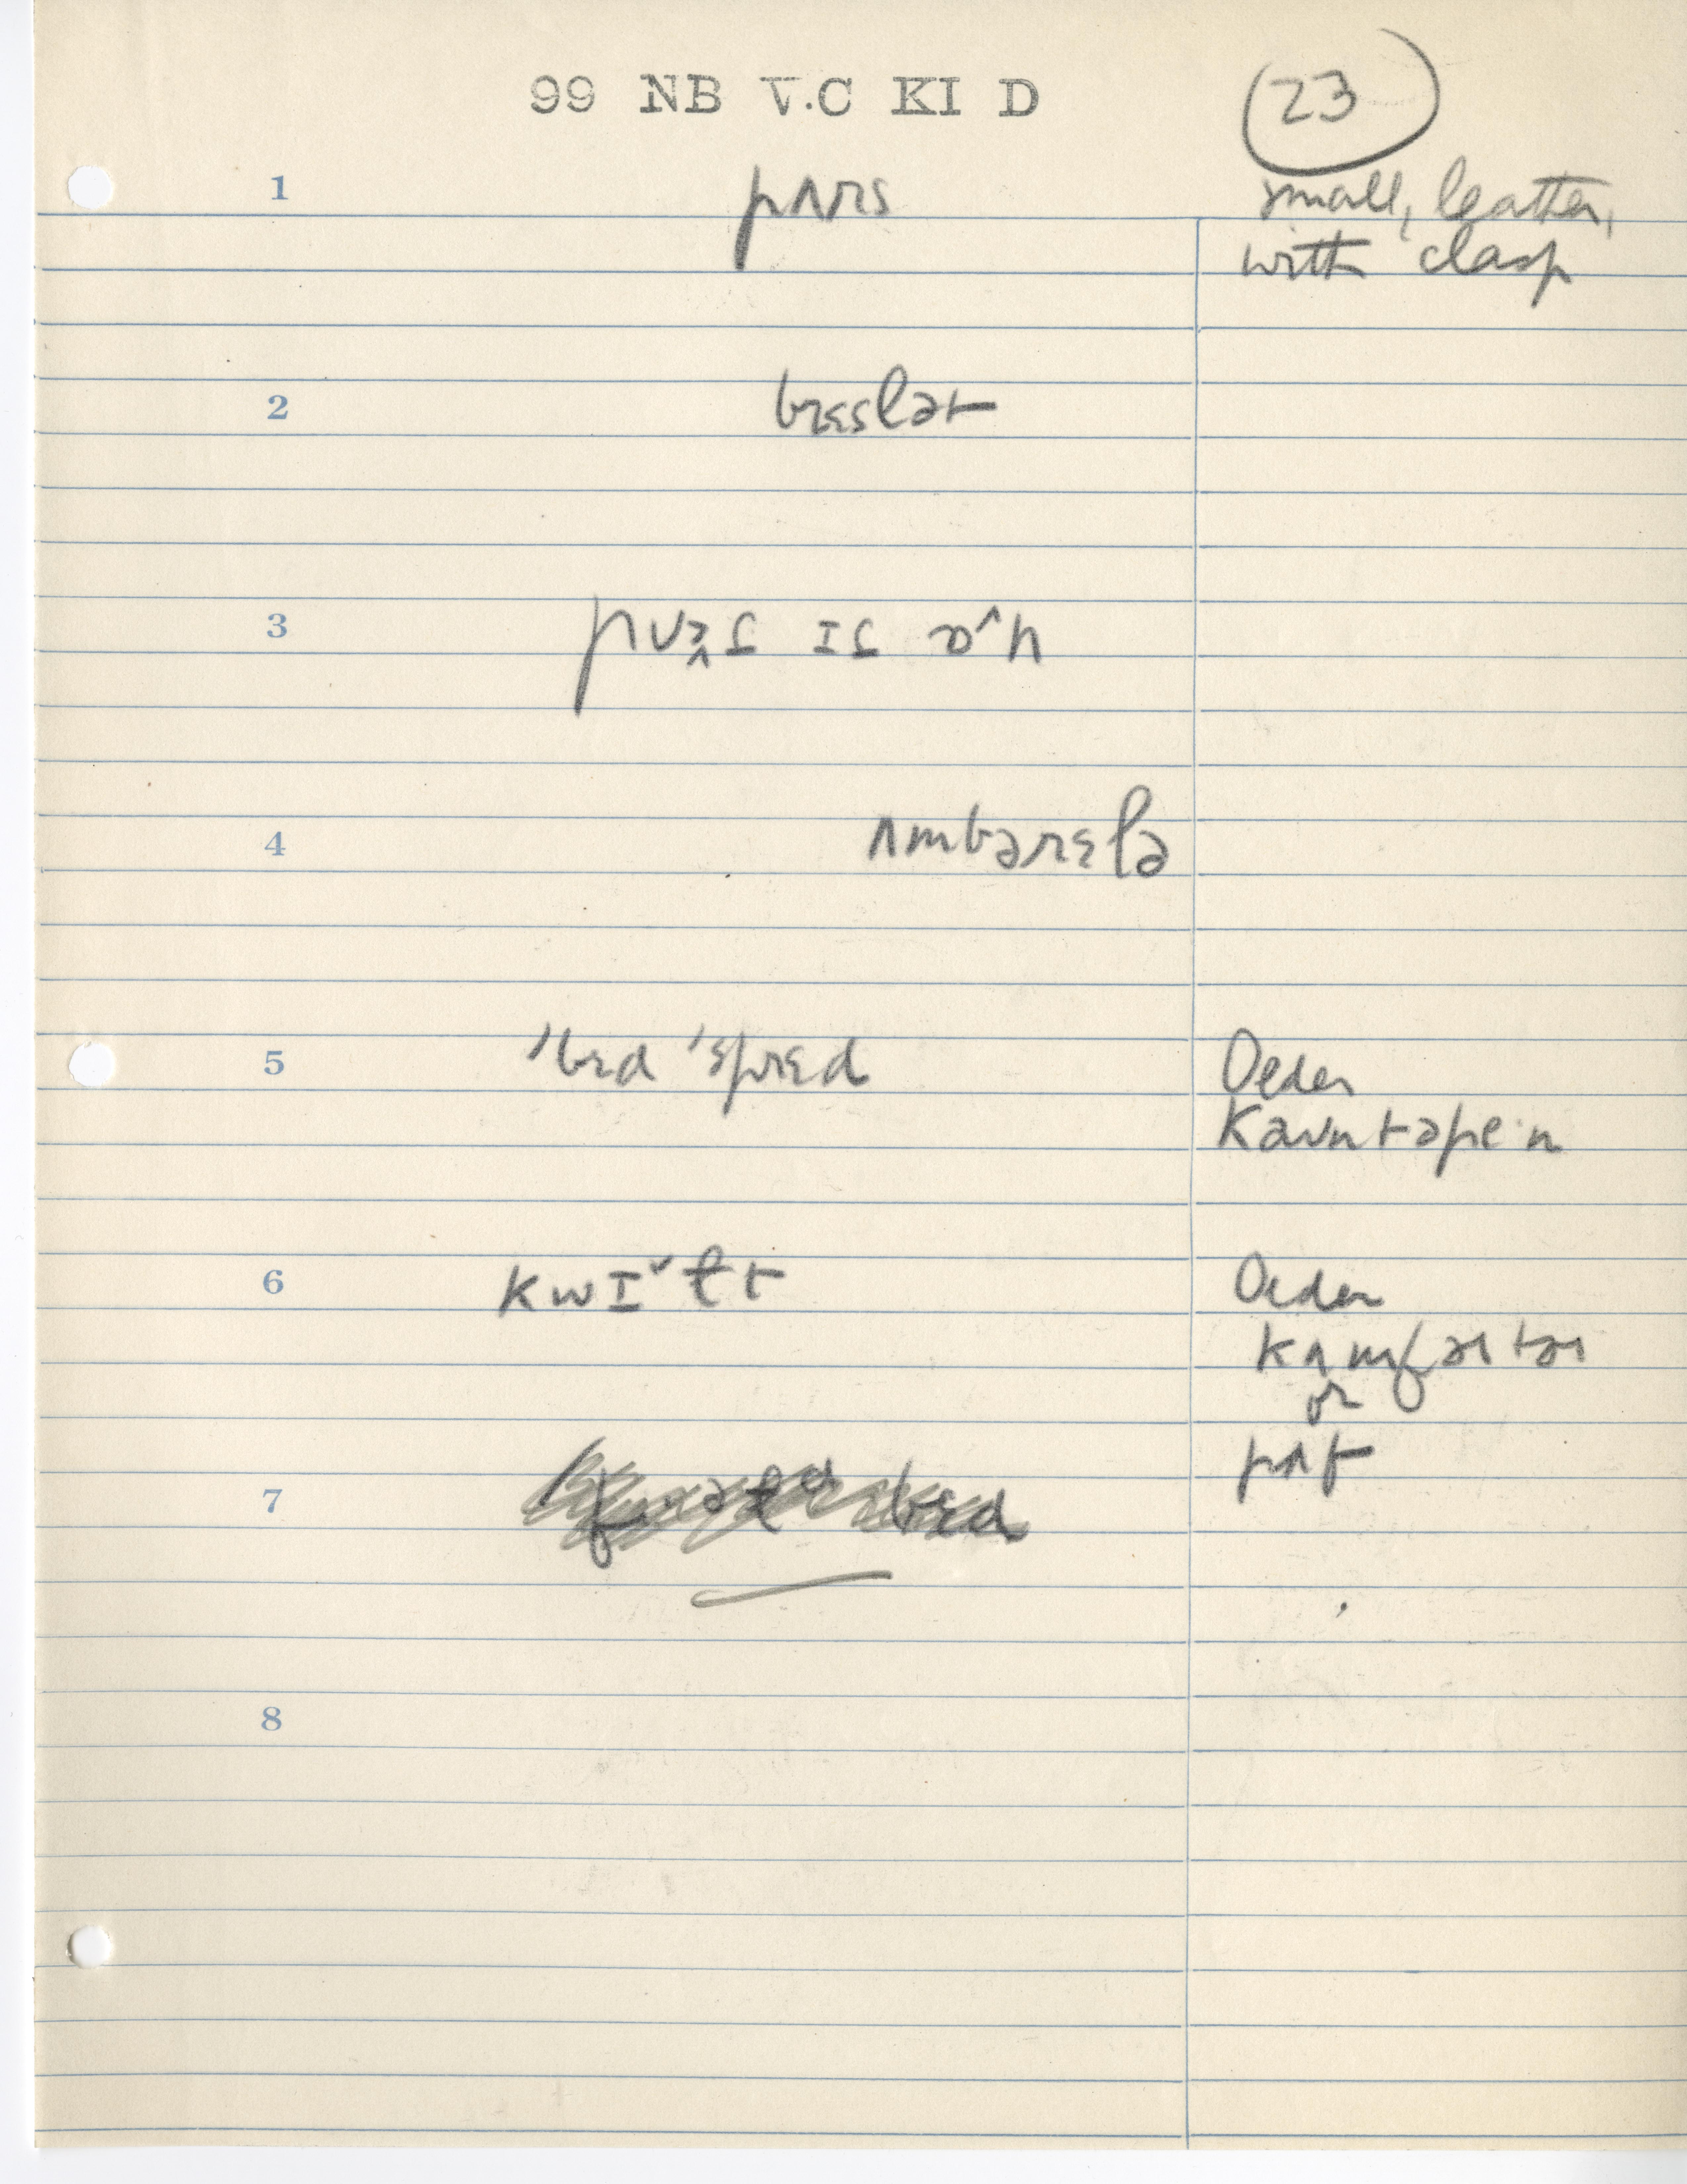 99 NB V.C KI D
23
1 pʌrs small, leather,
with clasp
2 brɛslət
3 ɪt ɒ^n
4 ʌmbərɛlə
5 'bɛd 'sprɛd Older
Kaʊntəpe·n
6 kwɪ˅ɫt Older
kʌmfərtər
or
pʌf
7 bɛd
8